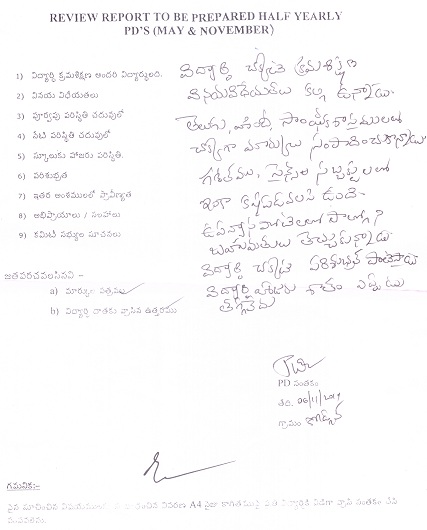 REVIEW REPORT TO BE PREPARED HALF YEARLY
PD'S (MAY & NOVEMBER)
1) విద్యార్థి క్రమశిక్షణ అందరి విద్యార్థులది.
2) వినయ విధేయతలు
3) పూర్వపు పరిస్థితి చదువులో
4) నేటి పరిస్థితి చదువులో
5) స్కూలుకు హాజరు పరిస్థితి.
6) పరిశుభ్రత
7) ఇతర అంశములలో ప్రావీణ్యత
8) అభిప్రాయాలు / సలహాలు
9) కమిటీ సభ్యుల సూచనలు
విద్యార్థి చక్కటి క్రమశిక్షణ
వినయవిధేయతలు కల్గి ఉన్నాడు.
తెలుగు, హిందీ, సాంఘీకశాస్త్రములలో
చక్కగా మార్కులు సంపాదించుకున్నాడు
గణితము, సైన్సు సబ్జెక్టులలో
ఇంకా కష్టపడవలసి ఉంది.
ఉపన్యాస పోటీలలో పాల్గొని
బహుమతులు తెచ్చుకున్నాడు.
విద్యార్థి చక్కటి పరిశుభ్రత పాటిస్తాడు
విద్యార్థి హాజరు శాతం ఎప్పుడు
తగ్గలేదు
జతపరచవలసినవి –
a) మార్కుల పత్రము
b) విద్యార్థి దాతకు వ్రాసిన ఉత్తరము
PD సంతకం
తేది. 06/11/2019
గ్రామం
గమనిక:-